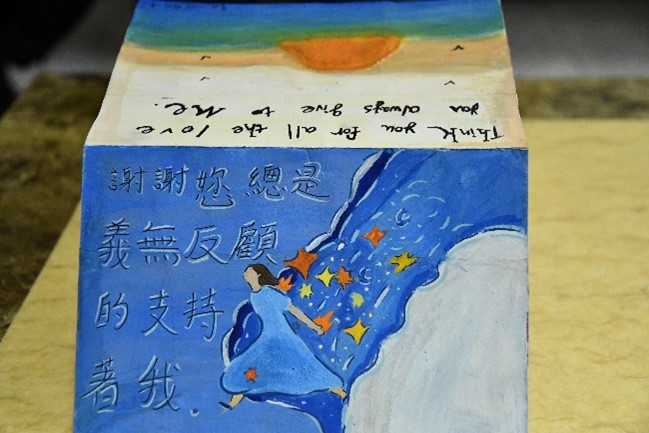 Think you for all the love
you always give to Me.
謝謝您總是
義無反顧
的支持
著我.